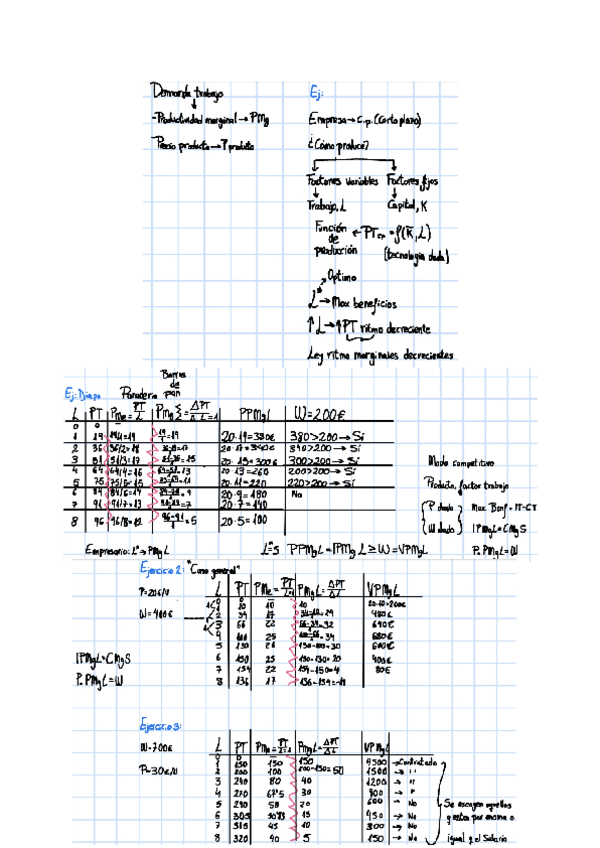 Demanda trabajo
- Productividad marginal → PMg
Precio producto → P producto
Ej:
Empresa → c.p. (Corto plazo)
¿Cómo produce?
Factores variables Factores fijos
Trabajo, L Capital, K
Función de producción ← PTcp = f(K̄, L)
(tecnología dada)
Óptimo
L → Max beneficios
↑L → ↑PT ritmo decreciente
Ley ritmo marginales decrecientes
Ej: Diapo Panadería Barras de pan
L PT PMe = PT/L PMg L = ΔPT/ΔL PPMgL W=200€
0 0
1 19 19/1=19 19/1=19 20·19=380€ 380>200 → Sí
2 36 36/2=18 20·17=340€ 340>200 → Sí
3 51 51/3=17 20·15=300€ 300>200 → Sí
4 64 64/4=16 20·13=260 260>200 → Sí
5 75 75/5=15 20·11=220 220>200 → Sí
6 84 84/6=14 20·9=180 No
7 91 91/7=13 20·7=140
8 96 96/8=12 96-91/1=5 20·5=100
Modo competitivo
Producto, factor trabajo
P dado Max. Benf = IT-CT
W dado IPMgL=CMgS
P·PMgL=W
Empresario: L* → PMgL L=5 PPMgL=IPMgL≥W=VPMgL
Ejercicio 2: "Caso general"
P=20€/U
W=400€
IPMgL=CMgS
P·PMgL=W
L PT PMe=PT/L PMgL=ΔPT/ΔL VPMgL
0 0
1 10 10 10 20·10=200€
2 34 17 480€
3 66 22 66-34=32 640€
4 100 25 680€
5 130 26 130-100=30 600€
6 150 25 150-130=20 400€
7 154 22 154-150=4 80€
8 136 17
Ejercicio 3:
W=700€
P=30€/U
L PT PMe=PT/L PMgL=ΔPT/ΔL VPMgL
0 0
1 150 150 150 4500 → Contratado
2 200 100 200-150=50 1500 → "
3 240 80 40 1200 → "
4 270 67'5 30 900 → "
5 290 58 20 600 → No
6 305 50'83 15 450 → No
7 315 45 10 300 → No
8 320 40 5 150 → No
Se escogen aquellos
q estan por encima o
igual q el Salario